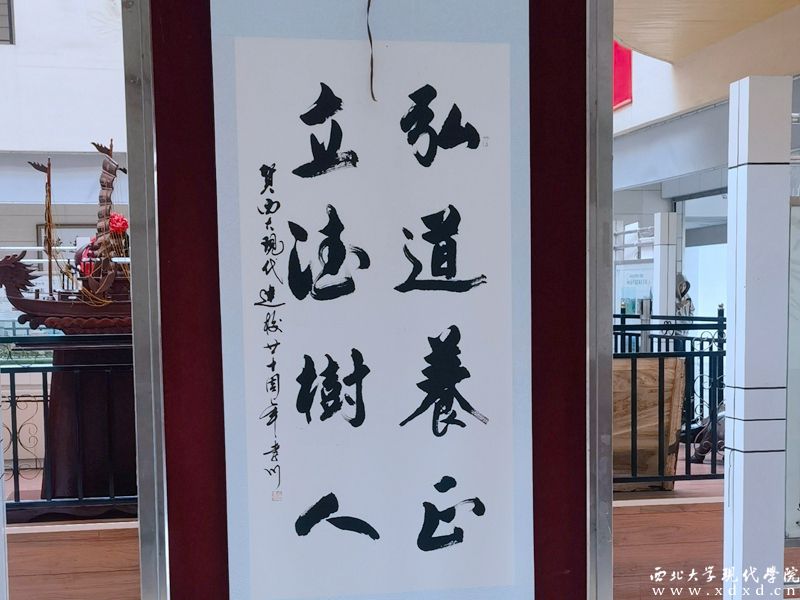 弘道養正
立德樹人
賀西大现代建校廿十周年
西北大学现代学院
www.xdxd.cn